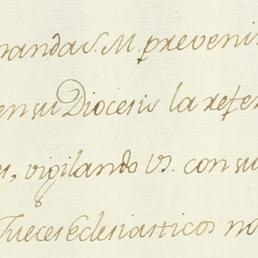 manda S. M. preveni
en su Diocesis la refe
vigilando VS. con su
Jueces Eclesiasticos no